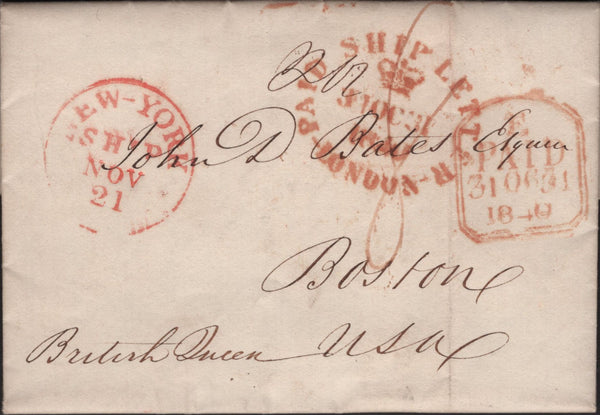 PAID SHIP LETTER LONDON
31 OC 31
NEW-YORK
SHIP
NOV
21
PAID
31 OC 31
1840
John D. Bates Esquire
Boston
British Queen USA